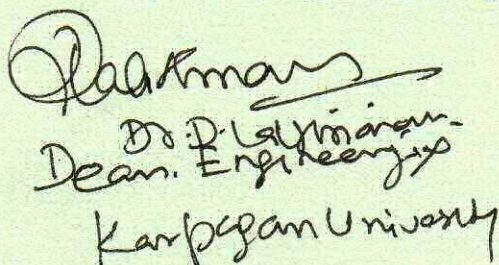 Dr. D. Laxmanan.
Dean. Engineering
Karpagam University